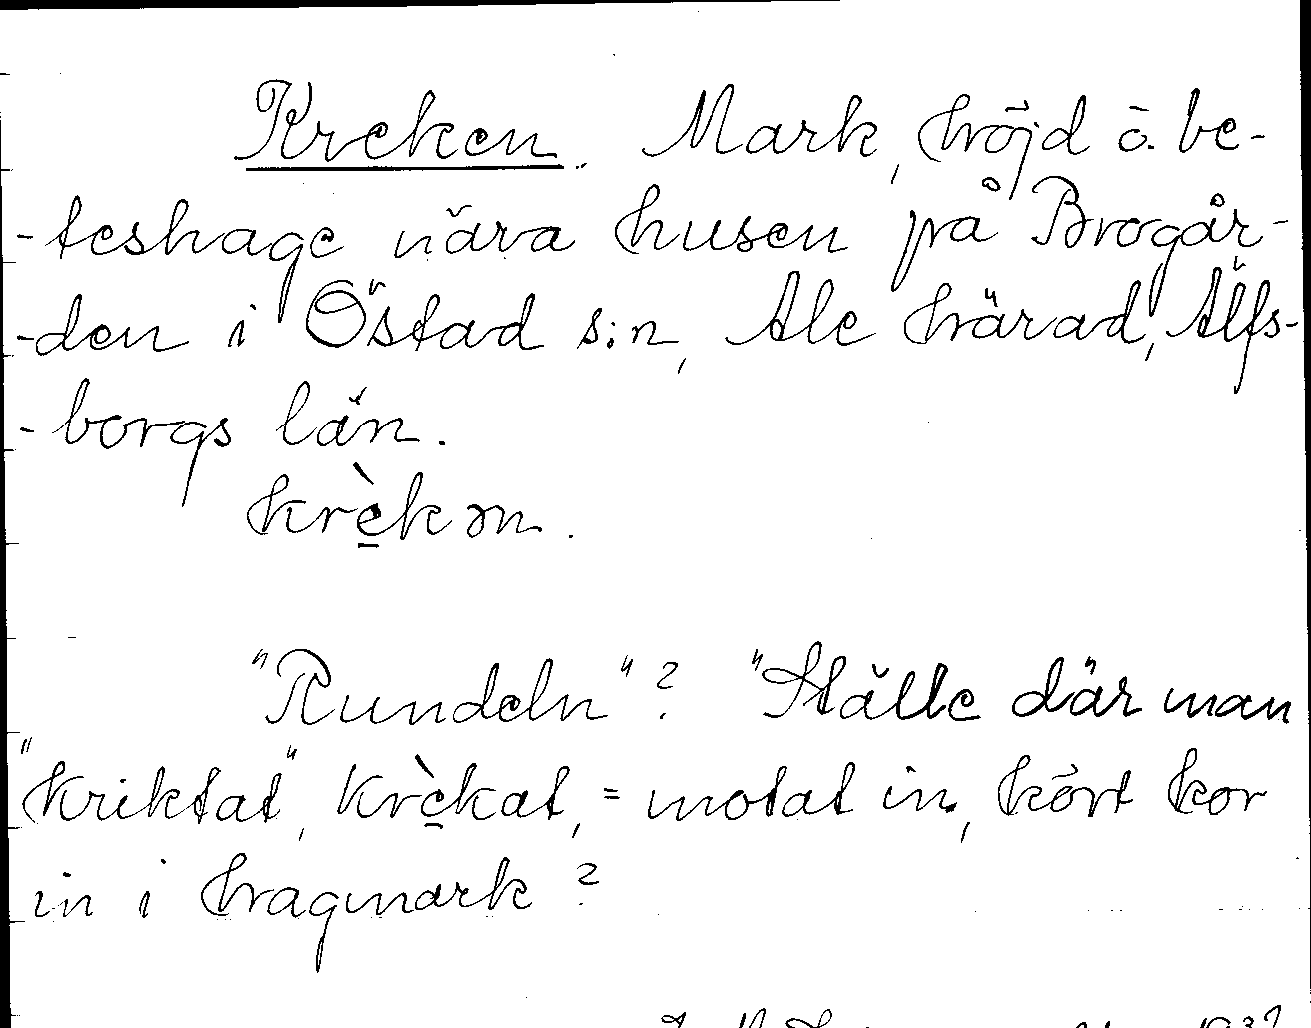 Kreken. Mark, höjd o. be-
-teshage nära husen på Brogår-
-den i Östad s:n, Ale härad, Älfs-
-borgs län.
krèkən.
"Rundeln"? "Ställe där man
"kriktat", krèkat, = motat in, kört kor
in i hagmark?